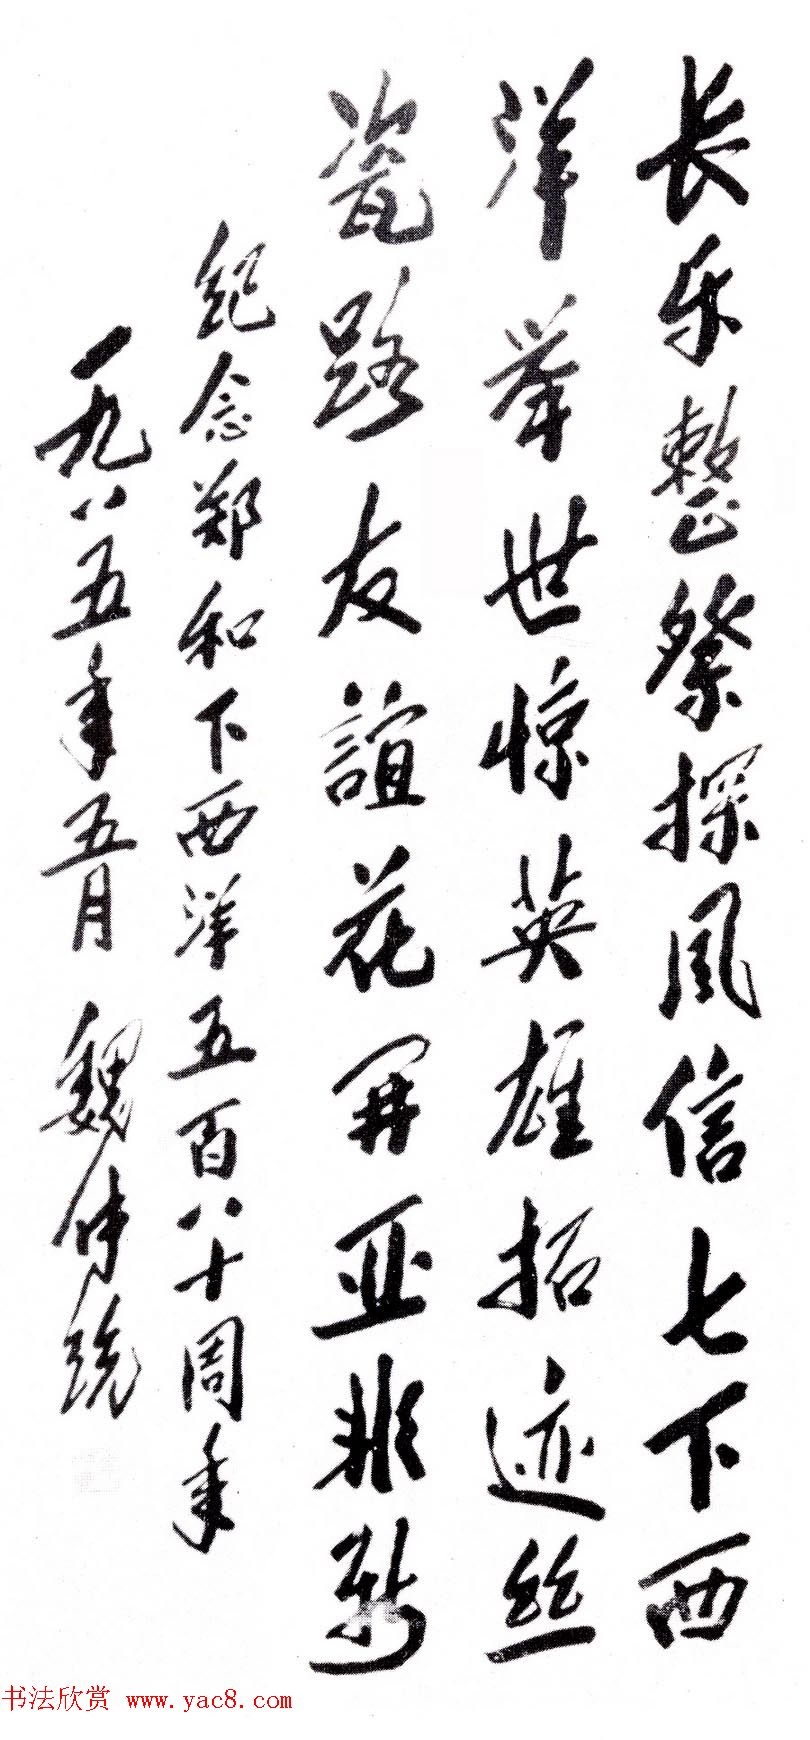 长乐整祭探风信七下西
洋举世惊英雄拓迹丝
瓷路友誼花开亚非新
纪念郑和下西洋五百八十周年
一九八五年五月 魏传统
书法欣赏 www.yac8.com